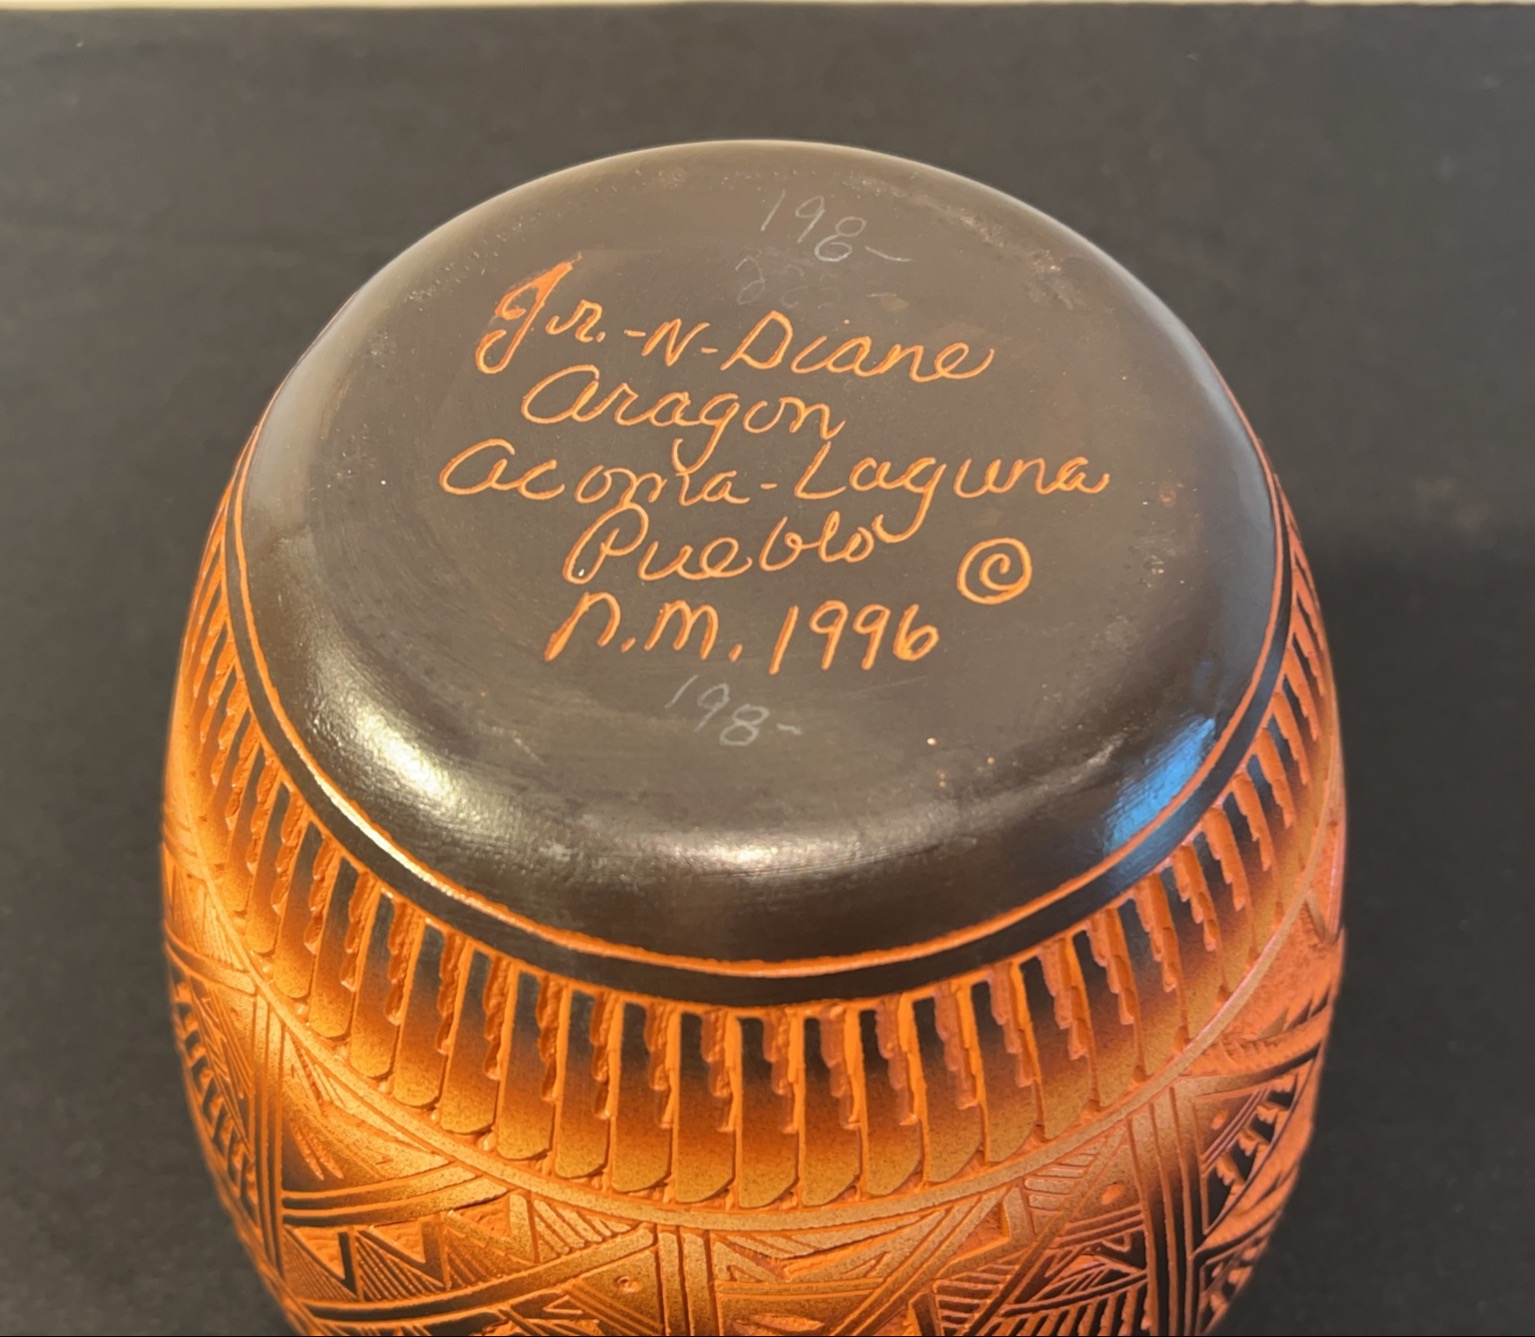 198-
225-
Jr.-N-Diane
Aragon
Acoma-Laguna
Pueblo ©
N.M. 1996
198-